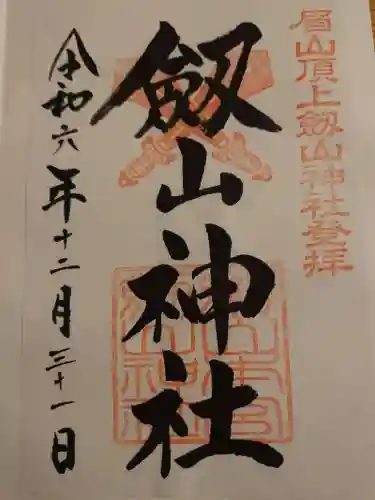 眉山頂上劔山神社登拝
劔山神社
令和六年十二月三十一日